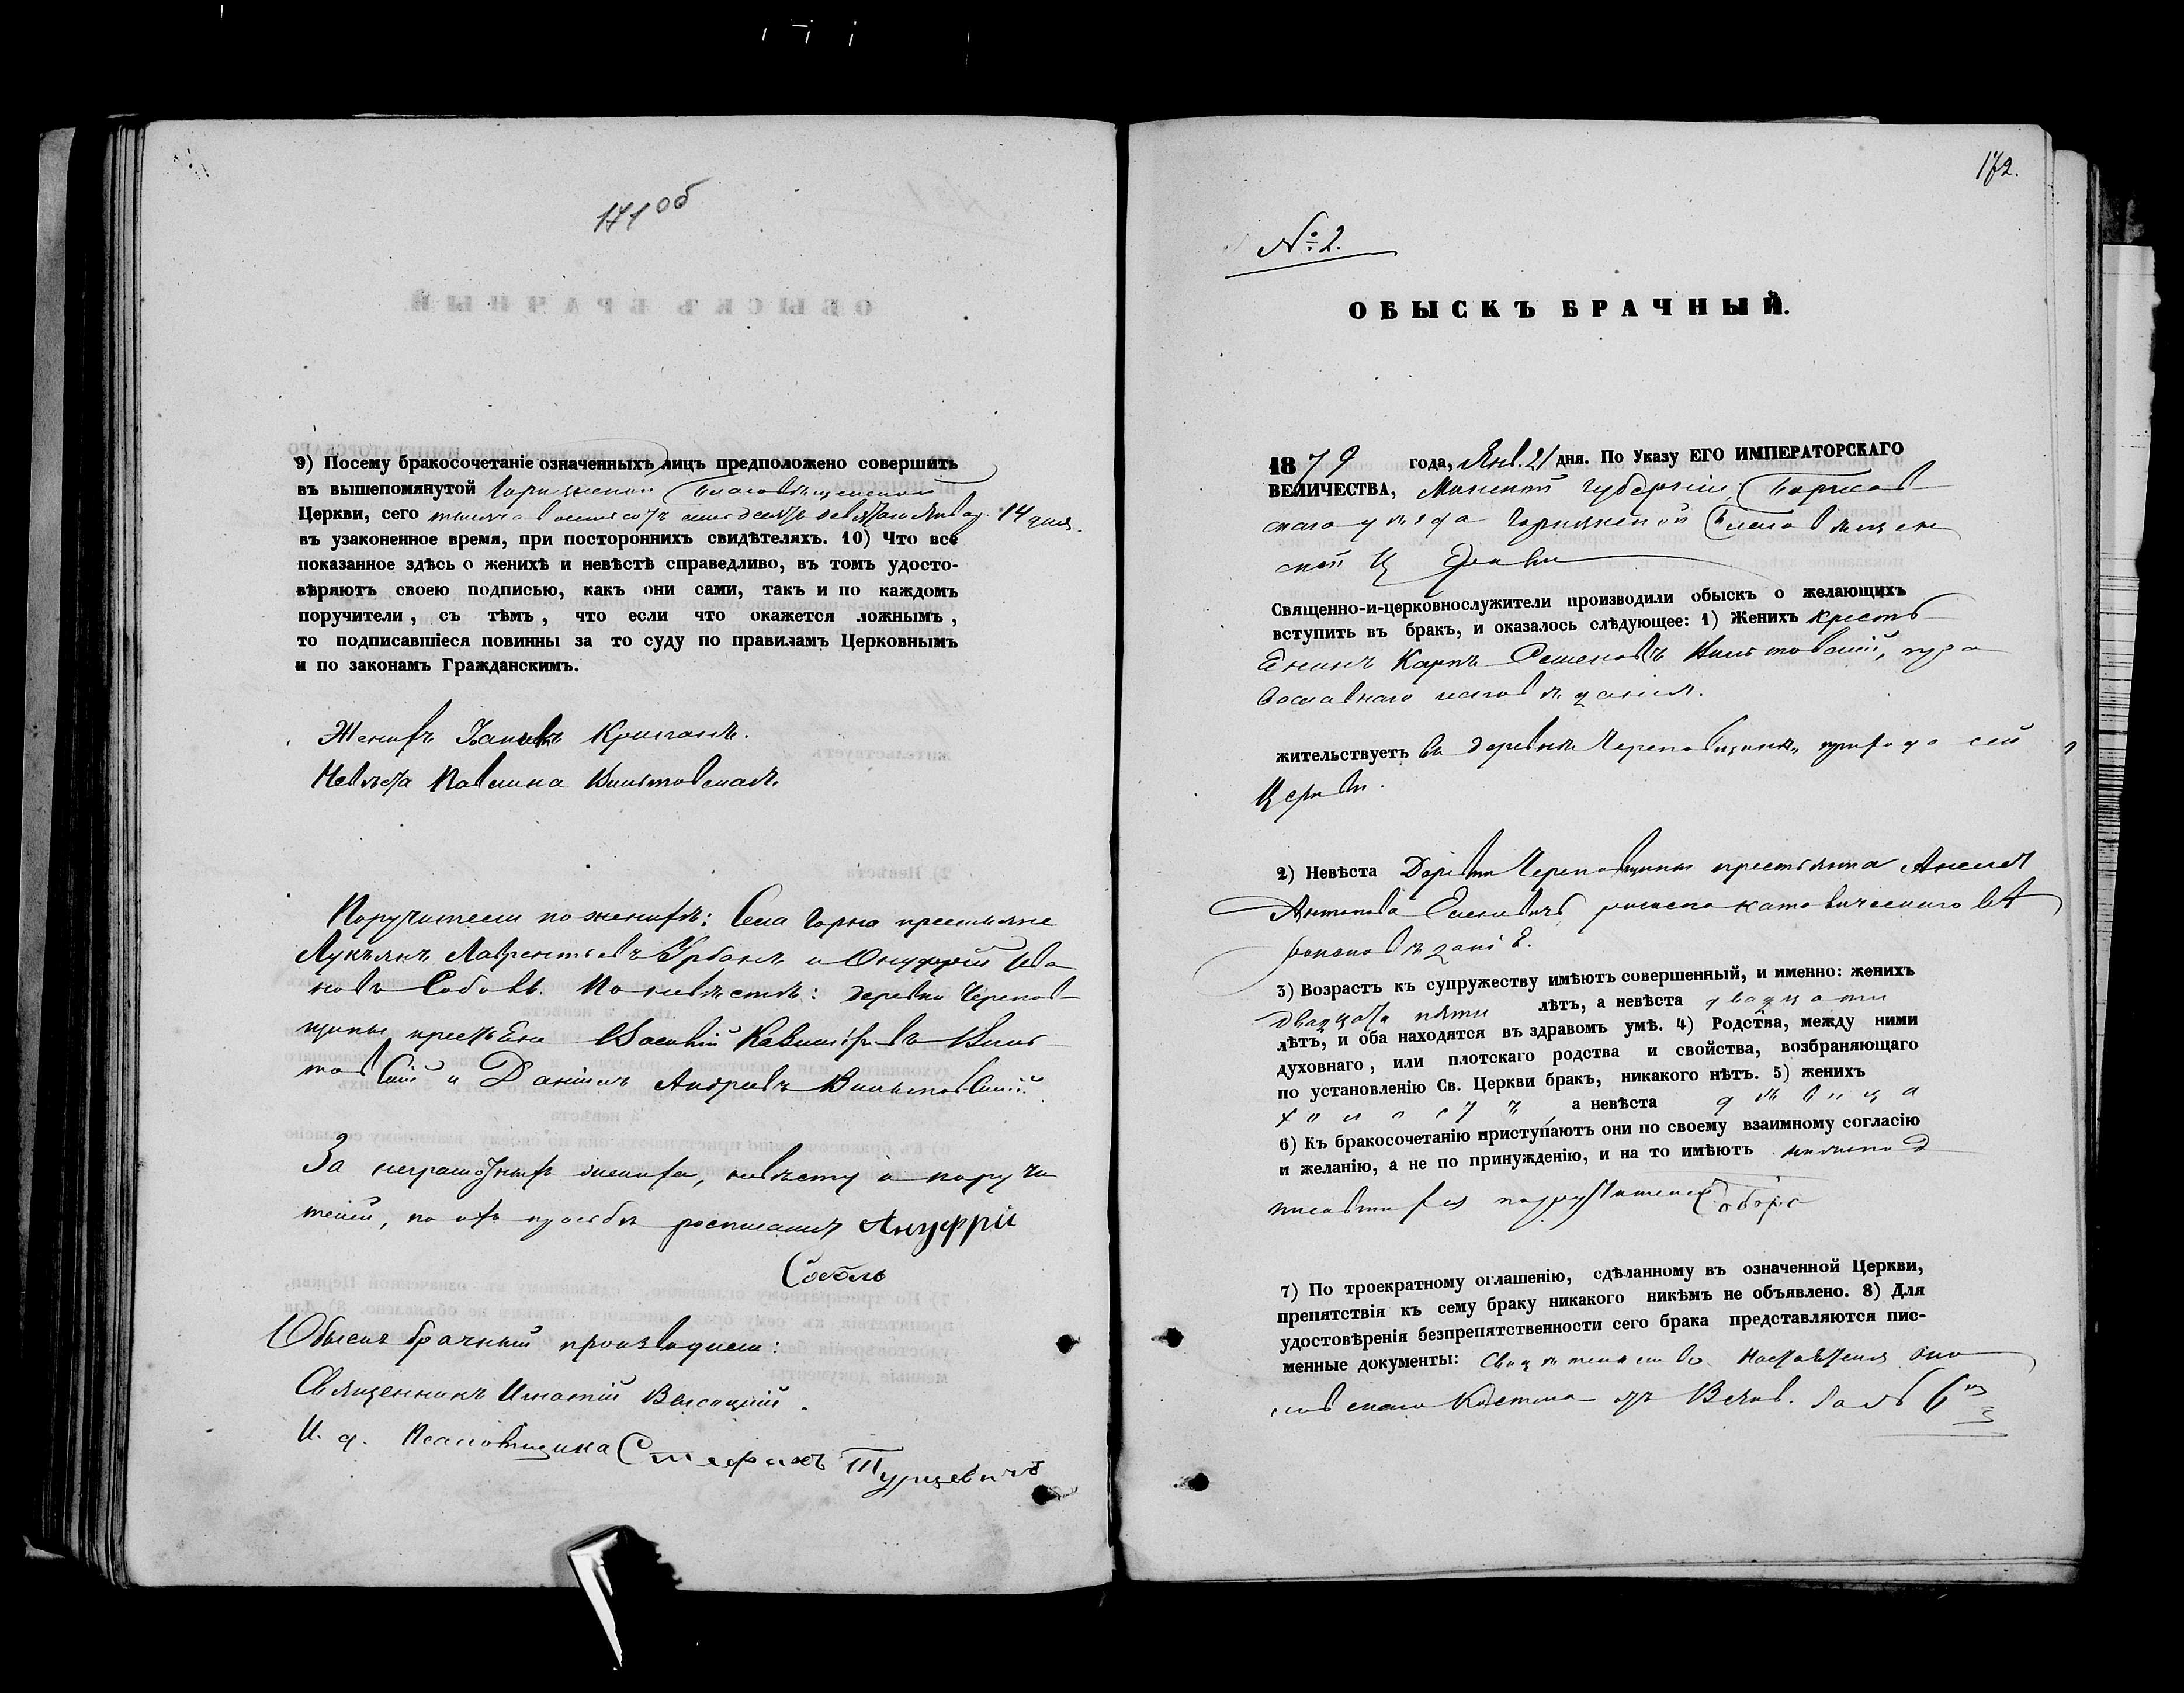 171 об
9) Посему бракосочетаніе означенныхъ лицъ предположено совершить
въ вышепомянутой Горнянской Благовѣщенской
Церкви, сего тысяча восемсотъ семдесятъ девятаго Января 14 дня.
въ узаконенное время, при постороннихъ свидѣтеляхъ. 10) Что все
показанное здѣсь о женихѣ и невѣстѣ справедливо, въ томъ удосто-
вѣряютъ своею подписью, какъ они сами, такъ и по каждомъ
поручители, съ тѣмъ, что если что окажется ложнымъ,
то подписавшіеся повинны за то суду по правиламъ Церковнымъ
и по законамъ Гражданскимъ.
Женихъ
Невѣста Павлина
Поручители по женихѣ: Села Горна крестьяне
Лукьянъ Лаврентьевъ Урбанъ и Онуфрій Ива
новъ Соболь. По невѣстѣ: деревни Черепов
щины крестьяне Василій
и Даніилъ Андреевъ
За неграмотныхъ жениха, невѣсту и поручи
телей, по ихъ просьбѣ росписался Ануфрій
Соболь
Обыскъ брачный производили:
Священникъ Игнатій Высоцкій.
И. д. Псаломщика Стефанъ Турцевичъ
172.
№ 2.
ОБЫСКЪ БРАЧНЫЙ.
1879 года, Янв. 21 дня. По Указу ЕГО ИМПЕРАТОРСКАГО
ВЕЛИЧЕСТВА, Минской губерніи, Борисов
скаго уѣзда Горнянской Благовѣщен
ской Церкви
Священно-и-церковнослужители производили обыскъ о желающихъ
вступить въ бракъ, и оказалось слѣдующее: 1) Женихъ кресть
янинъ Карпъ Семеновъ пра
вославнаго исповѣданія.
жительствуетъ въ деревнѣ Череповщинѣ, прихода сей
Церкви.
2) Невѣста Деревни Череповщины крестьянка
Антонова римско католическаго вѣ
роисповѣданія.
3) Возрастъ къ супружеству имѣютъ совершенный, и именно: женихъ
двадцати пяти лѣтъ, а невѣста двадцати
лѣтъ, и оба находятся въ здравомъ умѣ. 4) Родства, между ними
духовнаго, или плотскаго родства и свойства, возбраняющаго
по установленію Св. Церкви бракъ, никакого нѣтъ. 5) женихъ
холостъ, а невѣста дѣвица
6) Къ бракосочетанію приступаютъ они по своему взаимному согласію
и желанію, а не по принужденію, и на то имѣютъ
поручителей
7) По троекратному оглашенію, сдѣланному въ означенной Церкви,
препятствія къ сему браку никакого никѣмъ не объявлено. 8) Для
удостовѣренія безпрепятственности сего брака представляются пис-
менные документы: Свидѣтельство Настоятеля
костела за № 6